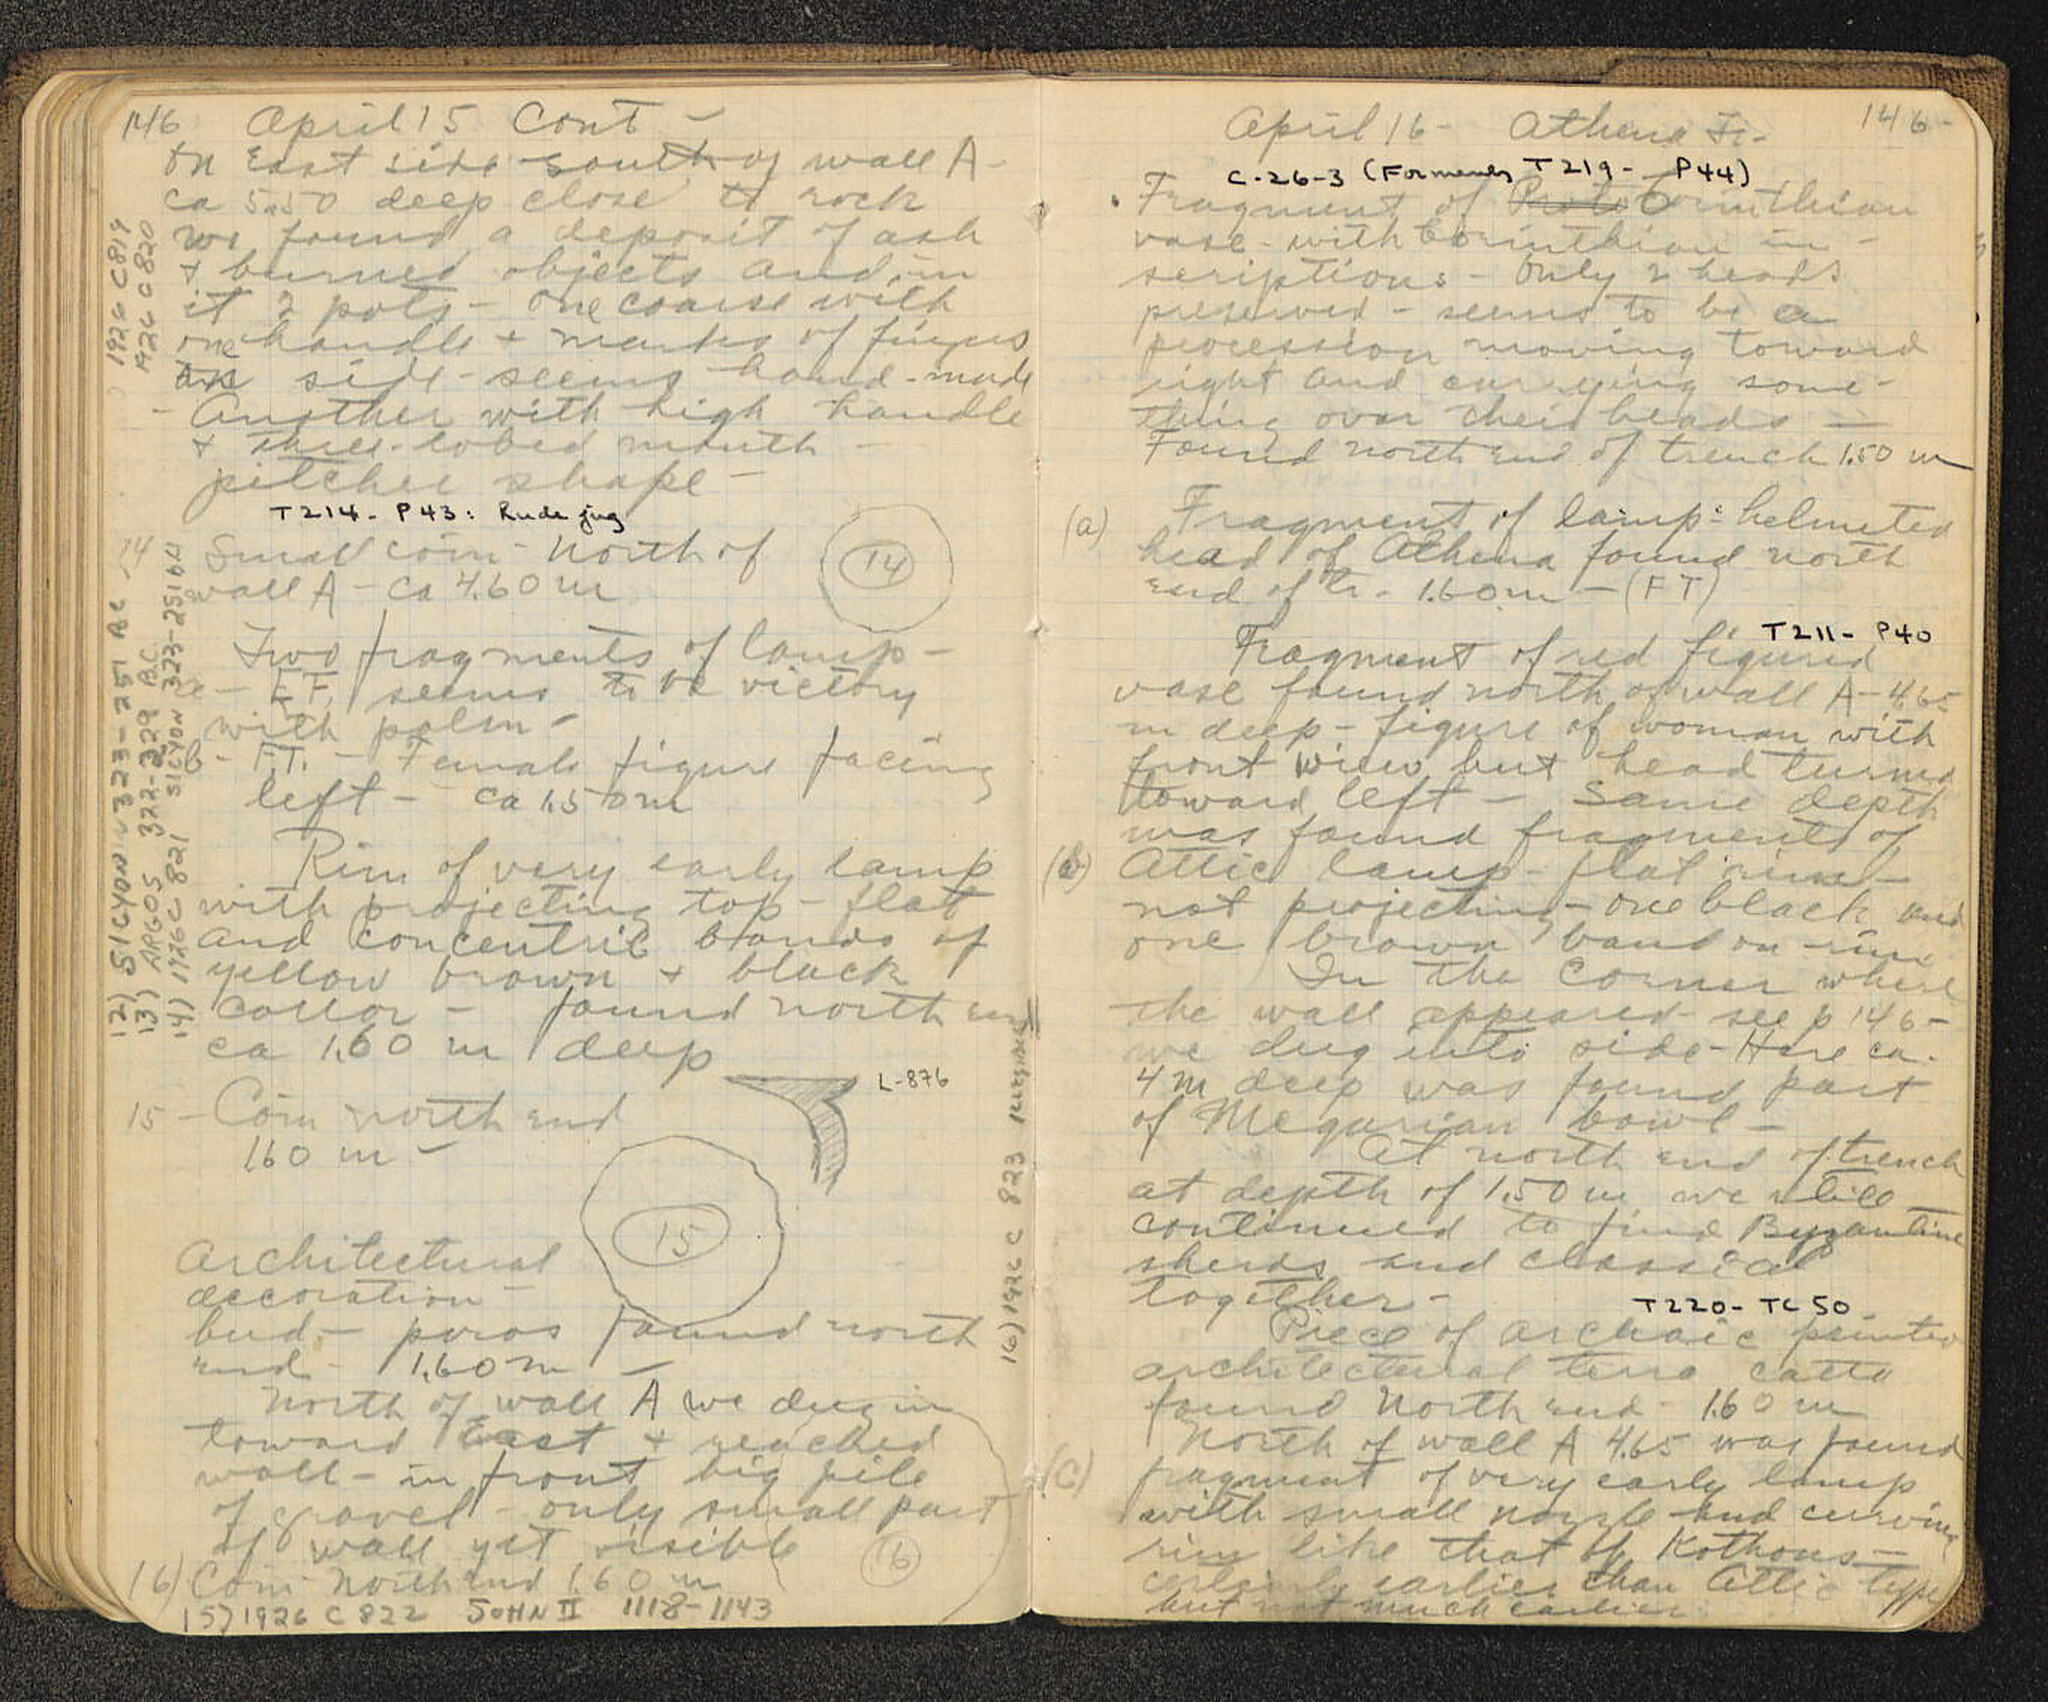 146 April 15 Cont -
on East side south of wall A-
ca 5.50 deep close to rock
we found a deposit of ash
+ burned objects and in
it 2 pots - one coarse with
one handle + marks of fingers
on side - seems hand-made
- Another with high handle
+ three-lobed mouth -
pitcher shape -
T214- P43: Rude jug
14 Small coin - North of
wall A - ca 4.60 m
14
Two fragments of lamp -
FF. seems to be victory
with palm -
b - FT. - Female figure facing
left - ca 1.50 m
Rim of very early lamp
with projecting top - flat
and concentric bands of
yellow brown + black
collor - found north end
ca 1.60 m deep
L-876
15 - Coin north end
1.60 m -
15
Architectural
decoration -
bud - poros found north
end - 1.60 m -
North of wall A we dug in
toward East + reached
wall - in front big pile
of gravel - only small part
of wall yet visible
16) Coin North end 1.60 m
16
15) 1926 C 822 JOHN II 1118-1143
1926 C 819
1926 C 820
12) SICYON 323-251 BC
13) ARGOS 322-229 B.C.
14) 1926 C 821 SICYON 323-251
16) 1926 C 823
April 16 - Athena Tr. - 146-
C-26-3 (Formerly T219- P44)
Fragment of Proto Corinthian
vase - with Corinthian in-
scriptions - Only 2 heads
preserved - seems to be a
procession moving toward
right and carrying some-
thing over their heads -
Found north end of trench 1.50 m
(a) Fragment of lamp: helmeted
head of Athena found north
end of tr. - 1.60 m - (FT)
T211- P40
Fragment of red figured
vase found north of wall A - 4.65
m deep - figure of woman with
front view but head turned
toward left - Same depth
was found fragments of
(b) Attic lamp - flat rim -
not projecting - one black and
one brown band on rim
In the corner where
the wall appeared - see p 146 -
we dug into side - Here ca.
4 m deep was found part
of Megarian bowl -
At north end of trench
at depth of 1.50 m we still
continued to find Byzantine
sherds and classical
together -
T220- TC 50
Piece of archaic painted
architectural terra catta
found North end - 1.60 m
North of wall A 4.65 was found
(c) fragment of very early lamp
with small nozzle and curving
rim like that of Kothons -
certainly earlier than Attic type
but not much earlier.